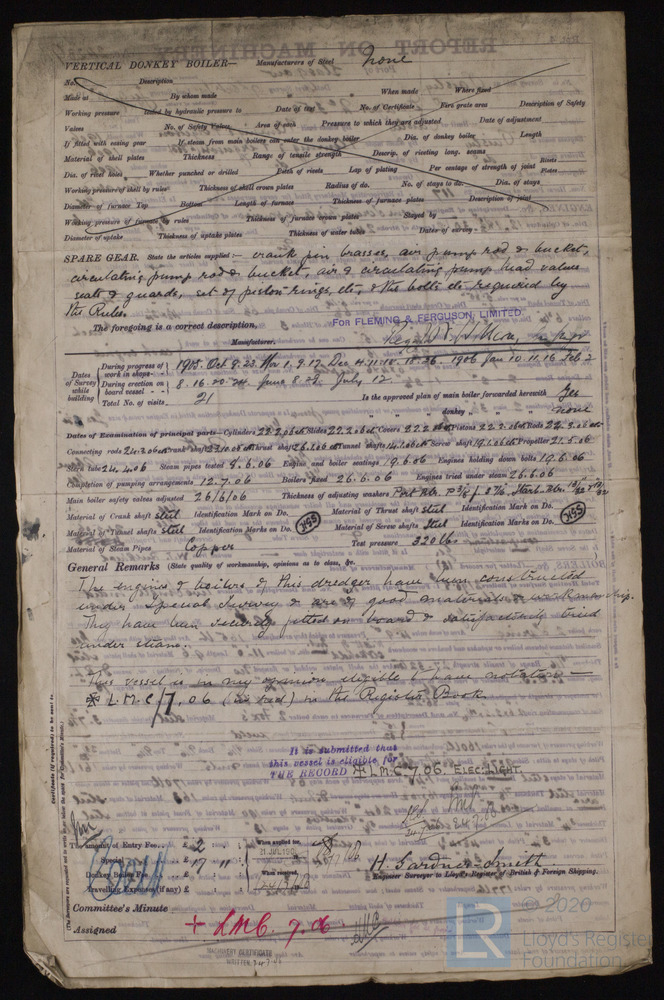 VERTICAL DONKEY BOILER— Manufacturers of Steel None
No. Description
Made at By whom made When made Where fixed
Working pressure tested by hydraulic pressure to Date of test No. of Certificate Fire grate area Description of Safety
Valves No. of Safety Valves Area of each Pressure to which they are adjusted Date of adjustment
If fitted with easing gear If steam from main boilers can enter the donkey boiler Dia. of donkey boiler Length
Material of shell plates Thickness Range of tensile strength Descrip. of riveting long. seams
Dia. of rivet holes Whether punched or drilled Pitch of rivets Lap of plating Per centage of strength of joint Rivets Plates
Working pressure of shell by rules Thickness of shell crown plates Radius of do. No. of stays to do. Dia. of stays
Diameter of furnace Top Bottom Length of furnace Thickness of furnace plates Description of joint
Working pressure of furnace by rules Thickness of furnace crown plates Stayed by
Diameter of uptake Thickness of uptake plates Thickness of water tubes Dates of survey
SPARE GEAR. State the articles supplied:— crank pin brasses, air pump rod & bucket,
circulating pump rod & bucket, air & circulating pump head valves
seats & guards, set of piston rings, etc, & the bolts etc required by
the Rules.
The foregoing is a correct description,
FOR FLEMING & FERGUSON, LIMITED
Manufacturer.
Dates of Survey while building
During progress of work in shops - - 1905 Oct 9. 23 Nov 1. 9. 17 Dec 4. 11. 18. 26. 1906 Jan 10. 11. 16 Feb 2
During erection on board vessel - - 8. 16. 20. 24. June 8. 22. July 12
Total No. of visits 21
Is the approved plan of main boiler forwarded herewith Yes
" " " donkey " " " none
Dates of Examination of principal parts—Cylinders 22.2.06 Slides 22.2.06 Covers 22.2.06 Pistons 22.2.06 Rods 22.2.06
Connecting rods Crank shaft Thrust shaft 26.1.06 Tunnel shafts Screw shaft 19.1.06 Propeller 21.5.06
Stern tube 24.4.06 Steam pipes tested 8.6.06 Engine and boiler seatings 19.6.06 Engines holding down bolts 19.6.06
Completion of pumping arrangements 12.7.06 Boilers fixed 26.6.06 Engines tried under steam 26.6.06
Main boiler safety valves adjusted 26/6/06 Thickness of adjusting washers
Material of Crank shaft steel Identification Mark on Do. Material of Thrust shaft steel Identification Mark on Do.
Material of Tunnel shafts steel Identification Marks on Do. Material of Screw shafts Steel Identification Marks on Do.
Material of Steam Pipes Copper Test pressure 320 lb.
General Remarks (State quality of workmanship, opinions as to class, &c.
The engines & boilers of this dredger have been constructed
under Special Survey & are of good materials & workmanship.
They have been securely fitted on board & satisfactorily tried
under steam.
This vessel is in my opinion eligible to have notation —
✠ L.M.C. 7, 06 (in red) in the Register Book.
Certificate (if required) to be sent to
It is submitted that
this vessel is eligible for
THE RECORD ✠ L.M.C. 7.06. ELEC. LIGHT.
24.7.06
The amount of Entry Fee. . £ 2 : :
When applied for,
21 JUL 190
Special £ 17 : 11 :
Donkey Boiler Fee £
When received,
Travelling Expenses (if any) £
H. Gardner-Smith
Engineer Surveyor to Lloyd's Register of British & Foreign Shipping.
Committee's Minute
Assigned + LMC. 7.06
MACHINERY CERTIFICATE
WRITTEN 24.7.06
© 2020
LR
Lloyd's Register
Foundation